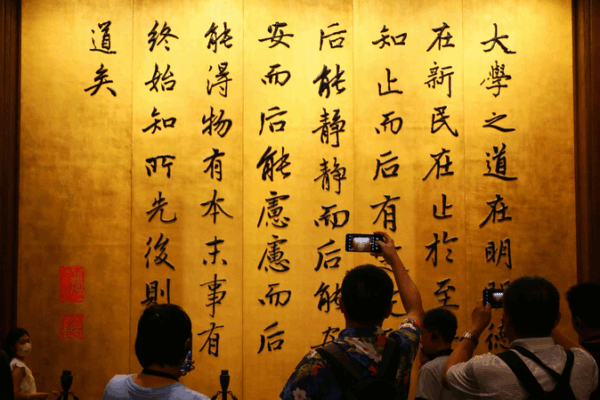 大學之道在明明德
在新民在止於至
知止而后有
后能静静而后能
安而后能慮慮而后
能得物有本末事有
終始知所先後則
道矣